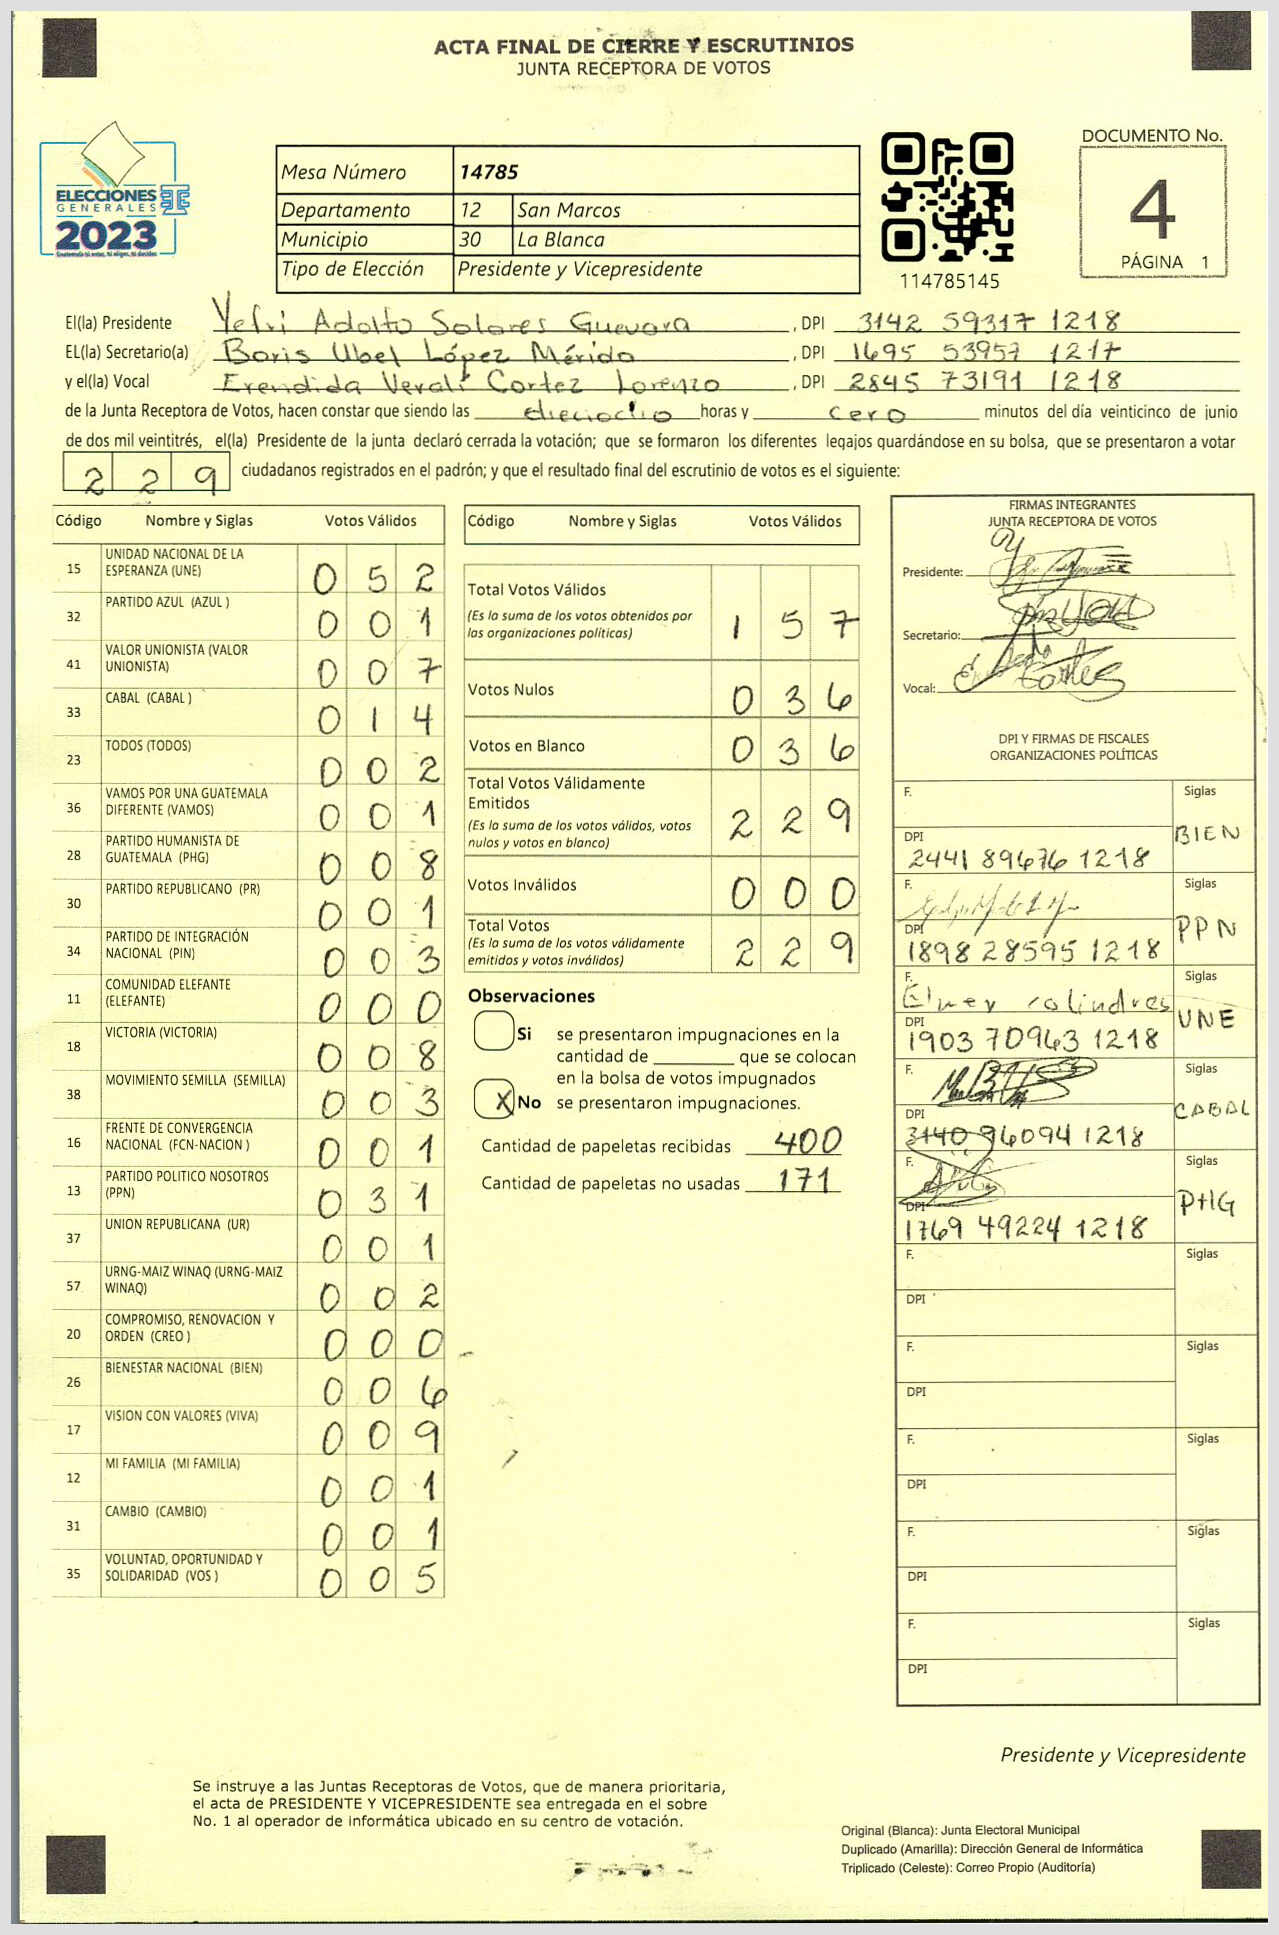 ACTA FINAL DE CIERRE Y ESCRUTINIOS
JUNTA RECEPTORA DE VOTOS
ELECCIONES
GENERALES
2023
Mesa Número 14785
Departamento 12 San Marcos
Municipio 30 La Blanca
Tipo de Elección Presidente y Vicepresidente
114785145
DOCUMENTO No.
4
PÁGINA 1
El(la) Presidente Yefri Adolfo Solares Guevara, DPI 3142 59317 1218
EL(la) Secretario(a) Boris Ubel López Mérida, DPI 1695 53957 1217
y el(la) Vocal Erendida Verali Cortez Lorenzo, DPI 2845 73191 1218
de la Junta Receptora de Votos, hacen constar que siendo las dieciocho horas y cero minutos del día veinticinco de junio
de dos mil veintitrés, el(la) Presidente de la junta declaró cerrada la votación; que se formaron los diferentes legajos quardándose en su bolsa, que se presentaron a votar
229 ciudadanos registrados en el padrón; y que el resultado final del escrutinio de votos es el siguiente:
Código Nombre y Siglas Votos Válidos
15 UNIDAD NACIONAL DE LA
ESPERANZA (UNE) 0 5 2
32 PARTIDO AZUL (AZUL ) 0 0 1
41 VALOR UNIONISTA (VALOR
UNIONISTA) 0 0 7
33 CABAL (CABAL ) 0 1 4
23 TODOS (TODOS) 0 0 2
36 VAMOS POR UNA GUATEMALA
DIFERENTE (VAMOS) 0 0 1
28 PARTIDO HUMANISTA DE
GUATEMALA (PHG) 0 0 8
30 PARTIDO REPUBLICANO (PR) 0 0 1
34 PARTIDO DE INTEGRACIÓN
NACIONAL (PIN) 0 0 3
11 COMUNIDAD ELEFANTE
(ELEFANTE) 0 0 0
18 VICTORIA (VICTORIA) 0 0 8
38 MOVIMIENTO SEMILLA (SEMILLA) 0 0 3
16 FRENTE DE CONVERGENCIA
NACIONAL (FCN-NACION ) 0 0 1
13 PARTIDO POLITICO NOSOTROS
(PPN) 0 3 1
37 UNION REPUBLICANA (UR) 0 0 1
57 URNG-MAIZ WINAQ (URNG-MAIZ
WINAQ) 0 0 2
20 COMPROMISO, RENOVACION Y
ORDEN (CREO ) 0 0 0
26 BIENESTAR NACIONAL (BIEN) 0 0 6
17 VISION CON VALORES (VIVA) 0 0 9
12 MI FAMILIA (MI FAMILIA) 0 0 1
31 CAMBIO (CAMBIO) 0 0 1
35 VOLUNTAD, OPORTUNIDAD Y
SOLIDARIDAD (VOS ) 0 0 5
Código Nombre y Siglas Votos Válidos
Total Votos Válidos
(Es la suma de los votos obtenidos por
las organizaciones políticas) 1 5 7
Votos Nulos 0 3 6
Votos en Blanco 0 3 6
Total Votos Válidamente
Emitidos
(Es la suma de los votos válidos, votos
nulos y votos en blanco) 2 2 9
Votos Inválidos 0 0 0
Total Votos
(Es la suma de los votos válidamente
emitidos y votos inválidos) 2 2 9
Observaciones
Si se presentaron impugnaciones en la
cantidad de ________ que se colocan
en la bolsa de votos impugnados
X No se presentaron impugnaciones.
Cantidad de papeletas recibidas 400
Cantidad de papeletas no usadas 171
FIRMAS INTEGRANTES
JUNTA RECEPTORA DE VOTOS
Presidente:
Secretario:
Vocal: Cortes
DPI Y FIRMAS DE FISCALES
ORGANIZACIONES POLÍTICAS
F. Siglas
BIEN
DPI
2441 89676 1218
F. Siglas
PPN
DPI
1898 28595 1218
F. Siglas
Elmer colindres
UNE
DPI
1903 70963 1218
F. Siglas
CABAL
DPI
3140 96094 1218
F. Siglas
PHG
DPI
1769 49224 1218
F. Siglas
DPI
F. Siglas
DPI
F. Siglas
DPI
F. Siglas
DPI
F. Siglas
DPI
Presidente y Vicepresidente
Se instruye a las Juntas Receptoras de Votos, que de manera prioritaria,
el acta de PRESIDENTE Y VICEPRESIDENTE sea entregada en el sobre
No. 1 al operador de informática ubicado en su centro de votación.
Original (Blanca): Junta Electoral Municipal
Duplicado (Amarilla): Dirección General de Informática
Triplicado (Celeste): Correo Propio (Auditoría)